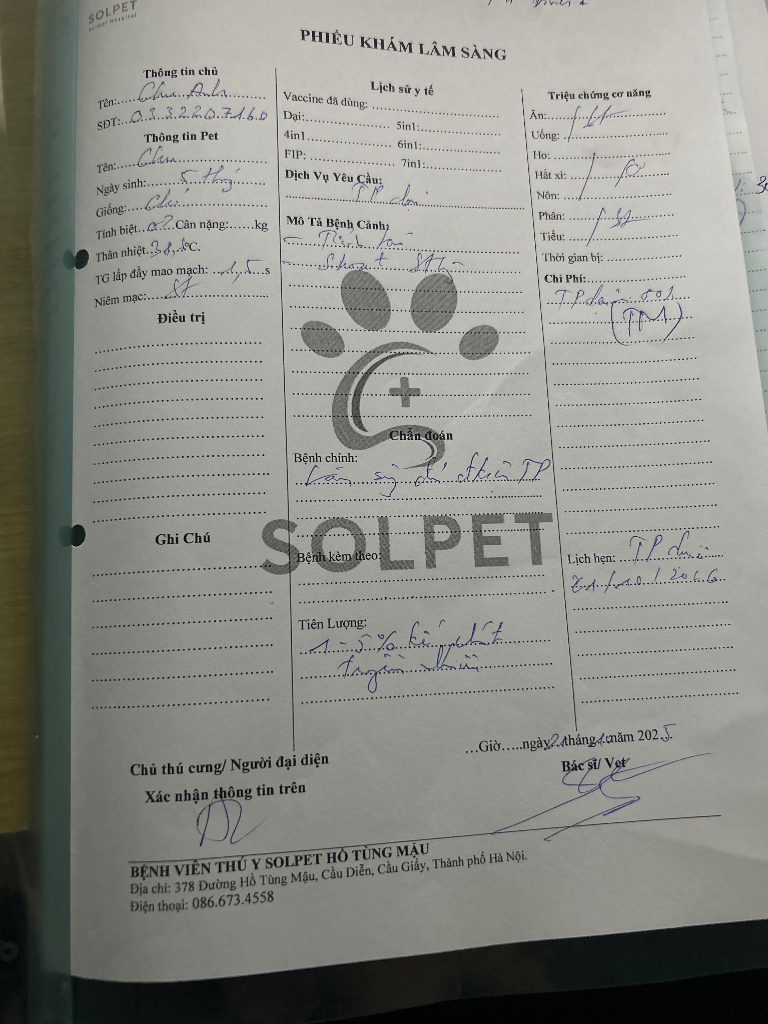 SOLPET
Animal Hospital
PHIẾU KHÁM LÂM SÀNG
Thông tin chủ
Tên: Chu Anh
SĐT: 0332207160
Thông tin Pet
Tên: Chu
Ngày sinh: 5 thg
Giống: Chó
Tính biệt: Cân nặng: kg
Thân nhiệt: 38, °C.
TG lấp đầy mao mạch: 1,5 s
Niêm mạc: ST
Điều trị
Ghi Chú
Lịch sử y tế
Vaccine đã dùng:
Dại: 5in1:
4in1 6in1:
FIP: 7in1:
Dịch Vụ Yêu Cầu:
TP dại
Mô Tả Bệnh Cảnh:
Chẩn đoán
Bệnh chính:
TP
SOLPET
Bệnh kèm theo:
Tiên Lượng:
1-5% kế phát
truyền nhiễm
Triệu chứng cơ năng
Ăn:
Uống:
Ho:
Hắt xì:
Nôn:
Phân:
Tiểu:
Thời gian bị:
Chi Phí:
TP dại
(TM)
Lịch hẹn: TP dại
21/10/2026
Giờ ngày 21 tháng 10 năm 2025
Chủ thú cưng/ Người đại diện
Xác nhận thông tin trên
Bác sĩ/ Vet
BỆNH VIÊN THÚ Y SOLPET HỒ TÙNG MẬU
Địa chỉ: 378 Đường Hồ Tùng Mậu, Cầu Diễn, Cầu Giấy, Thành phố Hà Nội.
Điện thoại: 086.673.4558